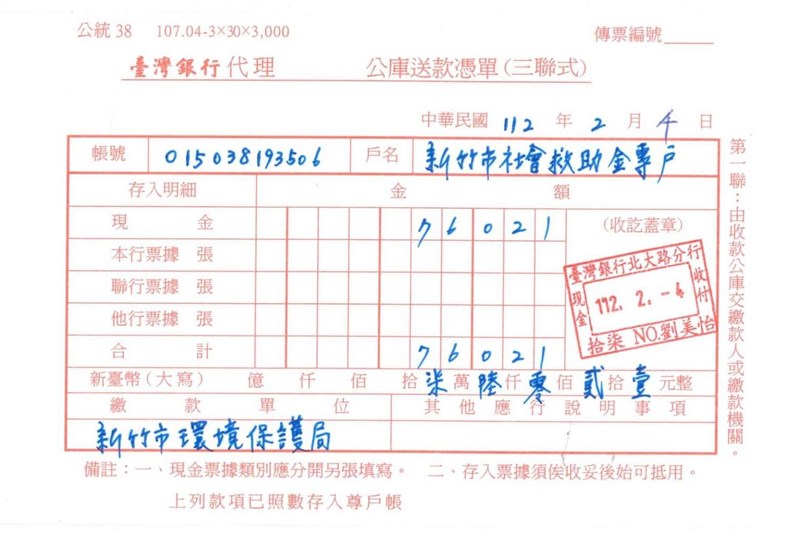 公統 38 107.04-3×30×3,000 傳票編號
臺灣銀行代理 公庫送款憑單(三聯式)
中華民國 112 年 2 月 4 日
帳號 015038193506 戶名 新竹市社會救助金專戶
存入明細 金額
現金 76021 (收訖蓋章)
本行票據 張
聯行票據 張
他行票據 張
合計 76021
臺灣銀行北大路分行
現金 112. 2. -4 收付
拾柒 NO.劉美怡
新臺幣(大寫) 億 仟 佰 拾 柒 萬 陸 仟 零 佰 貳 拾 壹 元整
繳款單位 其他應行說明事項
新竹市環境保護局
備註:一、現金票據類別應分開另張填寫。 二、存入票據須俟收妥後始可抵用。
上列款項已照數存入尊戶帳
第一聯:由收款公庫交繳款人或繳款機關。